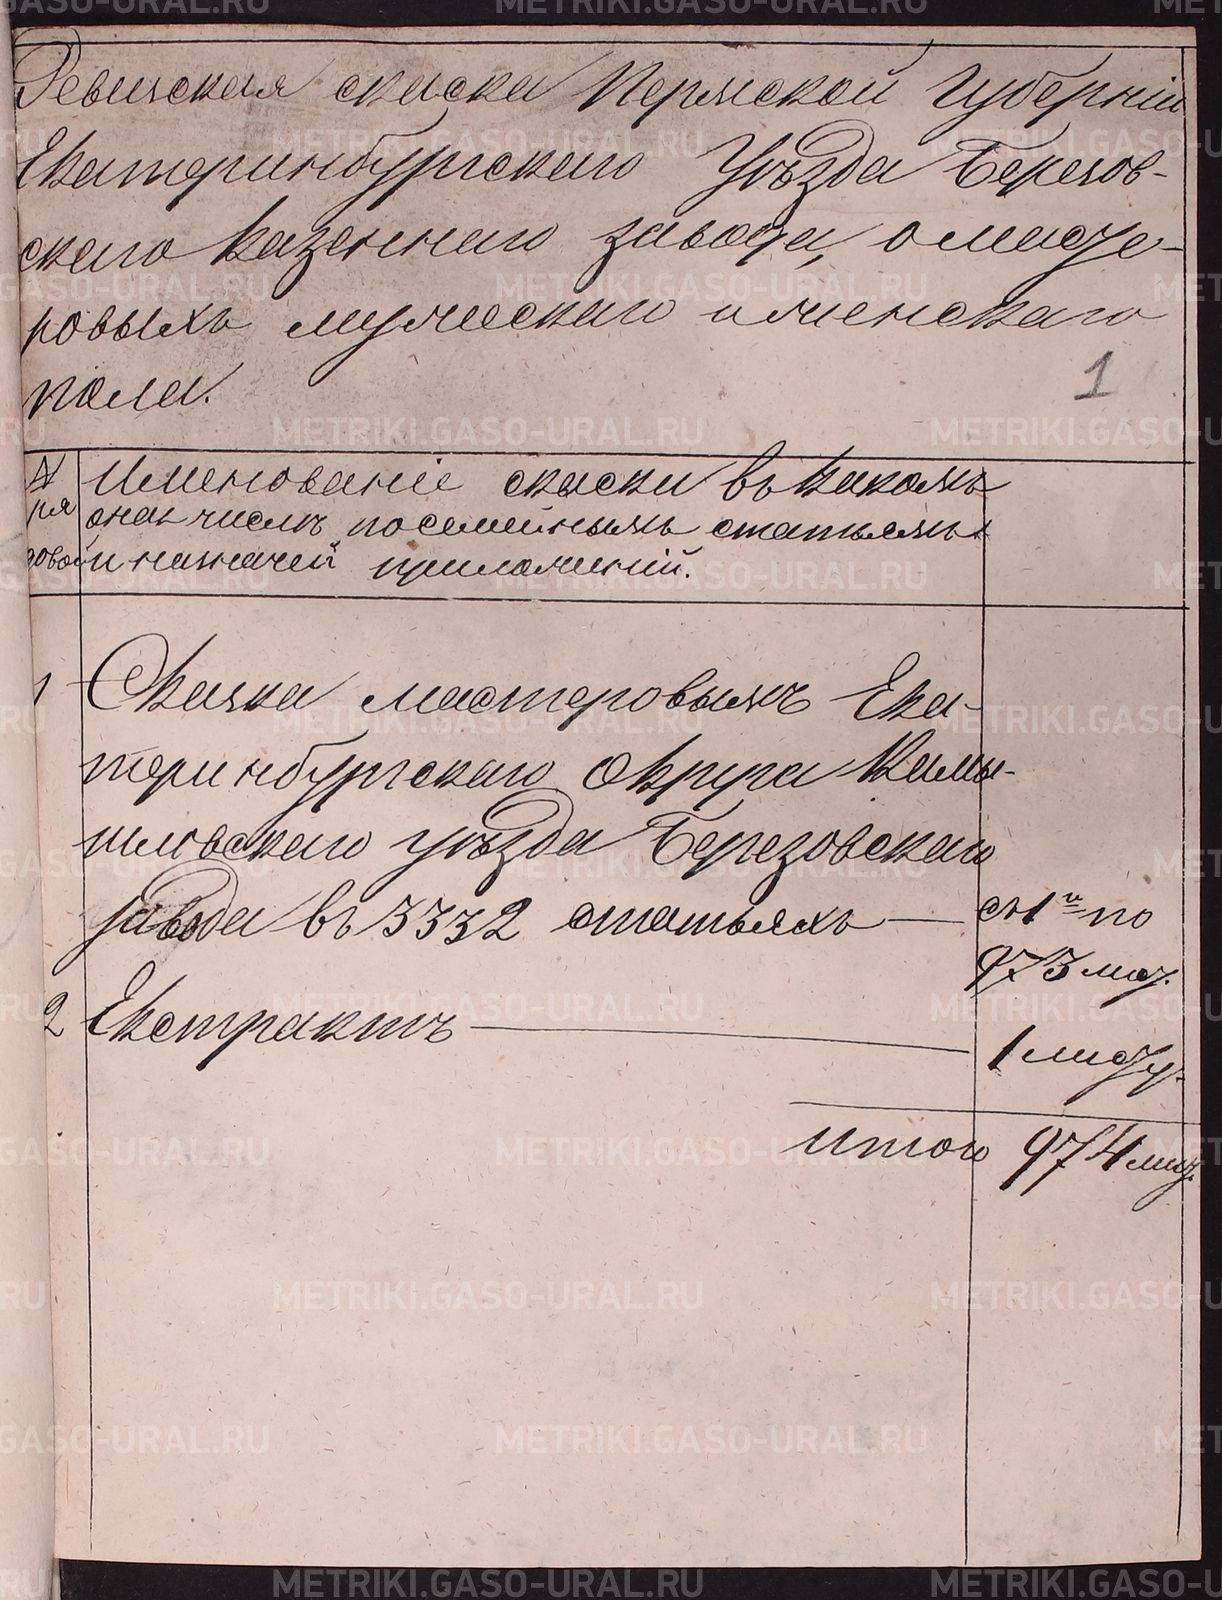 Ревизская скаска Пермской Губерніи
Екатеринбургскаго Уѣзда Березов-
скаго казеннаго завода, о масте-
ровыхъ мужескаго и женскаго
пола.
1
№ ря
довой
Именованіе скаски въ какомъ
она числѣ посемейныхъ статьяхъ
и назначен приложеній.
1 Скаска мастеровыхъ Ека-
теринбургскаго Округа Камы-
шловскаго уѣзда Березовскаго
завода въ 3332 статьяхъ — съ 1го по
973 лис.
2 Екстрактъ — 1 листу.
Итого 974 лис.
METRIKI.GASO-URAL.RU